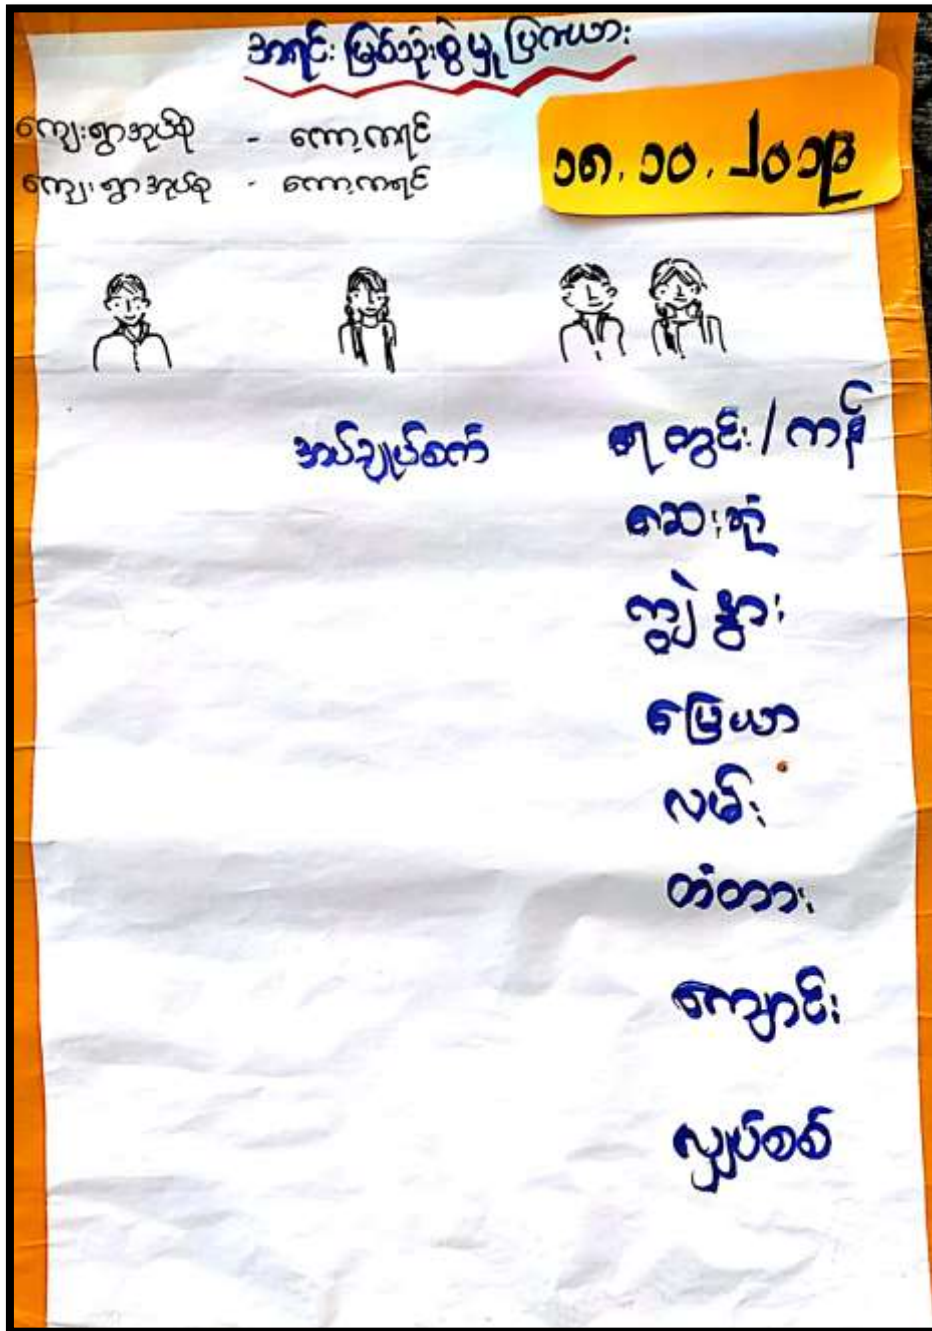 အရင်းမြစ်သုံးစွဲမှု ပြကယား
ကျေးရွာအုပ်စု - ကော့ကရင်
ကျေးရွာအုပ်စု - ကော့ကရင်
၁၈.၁၀.၂၀၁၉
အပ်ချုပ်စက် ရေတွင်း/ကန်
ဆေးရုံ
ကျွဲနွား
မြေယာ
လမ်း
တံတား
ကျောင်း
လျှပ်စစ်